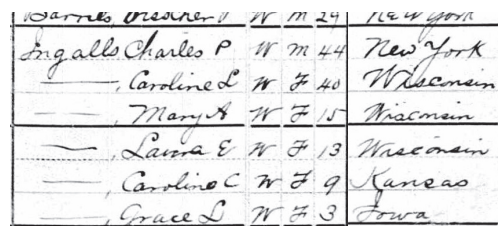 Barnes, Visscher V W M 29 New York
Ingalls Charles P W M 44 New York
——, Caroline L W F 40 Wisconsin
——, Mary A W F 15 Wisconsin
——, Laura E W F 13 Wisconsin
——, Caroline C W F 9 Kansas
——, Grace L W F 3 Iowa